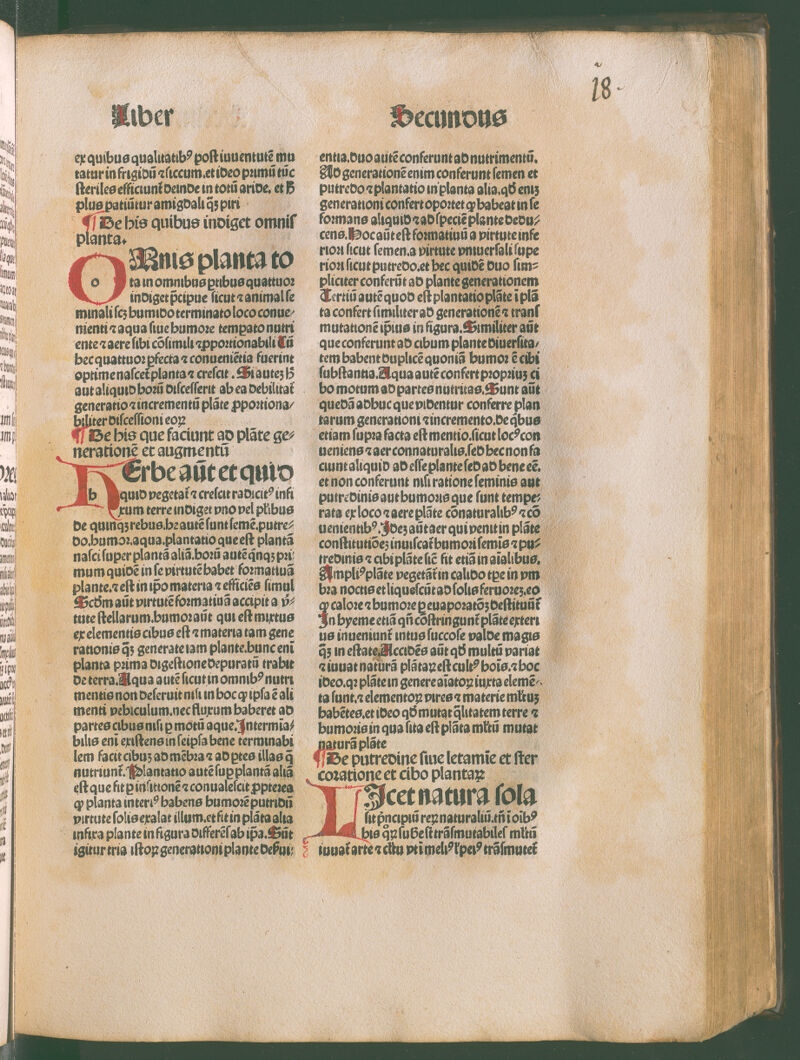 Liber
Secundus
18.
ex quibus qualitatibꝰ post iuuentutē mu
tatur in frigidū ⁊ siccum. et ideo primū tūc
steriles efficiunt̄ deinde in totū aride. et h̄
plus patiūtur amigdali q̄ꝫ piri
¶ De his quibus indiget omnis
planta.
OMnis planta to
ta in omnibus ꝑtibus quattuor
indiget p̄cipue sicut ⁊ animal se
minali scꝫ humido terminato loco conue⸗
nienti ⁊ aqua siue humore temꝑato nutri
ente ⁊ aere sibi cōsimili ⁊ ꝓportionabili Cū
hec quattuor ꝑfecta ⁊ conueniētia fuerint
optime nascet̄ planta ⁊ crescit. Si auteꝫ h̄
aut aliquid horū discesserit ab ea debilitat̄
generatio ⁊ incrementū plāte ꝓportiona⸗
biliter discessioni eoꝝ
¶ De his que faciunt ad plāte ge⸗
nerationē et augmentū
HErbe aūt et quid
quid vegetat̄ ⁊ crescit radicitꝰ infi
xum terre indiget vno vel pl̄ibus
de quinqꝫ rebus. he aūt sunt semē. putre⸗
do. humor. aqua. plantatio que est plantā
nasci super plantā aliā. horū autē q̄nqꝫ pri
mum quidē in se virtutē habet formatiuā
plante. ⁊ est in ip̄o materia ⁊ efficiēs simul
Scd̄m aūt virtutē formatiuā accipit a v̄⸗
tute stellarum. humor aūt qui est mixtus
ex elementis cibus est ⁊ materia tam gene
rationis q̄ꝫ generate iam plante. hunc eni
planta prima digestione depuratū trahit
de terra. Aqua autē sicut in omnibꝰ nutri
mentis non deseruit nisi in hoc ꝙ ipsa ē ali
menti vehiculum. nec fluxum haberet ad
partes cibus nisi ꝑ motū aque. Intermia⸗
bilis eni existens in seipsa bene terminabi
lem facit cibuꝫ ad mēbra ⁊ ad ꝑtes illas q̄
nutriunt̄. Plantatio autē suꝑ plantā aliā
est que fit ꝑ insitionē ⁊ conualescit ꝓpterea
ꝙ planta interiꝰ habens humorē putridū
virtute solis exalat illum. et fit in plāta alia
infixa plante in figura differēs ab ip̄a. Sūt
igitur tria istoꝝ generationi plante deserui⸗
entia. duo autē conferunt ad nutrimentū.
Ad generationē enim conferunt semen et
putredo ⁊ plantatio in planta alia. qd̄ eniꝫ
generationi confert oportet ꝙ habeat in se
formans aliquid ⁊ ad speciē plante dedu⸗
cens. Hoc aūt est formatiuū a virtute infe
riori sicut semen. a virtute vniuersali supe
riori sicut putredo. et hec quidē duo sim⸗
pliciter conferūt ad plante generationem
Tertiū autē quod est plantatio plāte ī plā
ta confert similiter ad generationē ⁊ trans
mutationē ip̄ius in figura. Similiter aūt
que conferunt ad cibum plante diuersita⸗
tem habent duplicē quoniā humor ē cibi
substantia. Aqua autē confert proprius ci
bo motum ad partes nutritas. Sunt aūt
quedā adhuc que videntur conferre plan
tarum generationi ⁊ incremento. de q̄bus
etiam supra facta est mentio. sicut locꝰ con
ueniens ⁊ aer connaturalis. sed hec non fa
ciunt aliquid ad esse plante sed ad bene eē.
et non conferunt nisi ratione seminis aut
putredinis aut humoris que sunt tempe⸗
rata ex loco ⁊ aere plāte cōnaturalibꝰ ⁊ cō
uenientibꝰ. Ideꝫ aūt aer qui venit in plāte
constitutiōeꝫ inuiscat̄ humori semis ⁊ pu⸗
tredinis ⁊ cibi plāte sic̄ fit etiā in aīalibus.
Ampliꝰ plāte vegetāt̄ in calido tꝑe in vm
bra noctis et liquescūt ad solis feruoreꝫ. eo
ꝙ calore ⁊ humore ꝑ euaporatōꝫ destituūt̄
In hyeme etiā qn̄ cōstringunt̄ plāte exteri
us inueniunt̄ intus succose valde magis
q̄ꝫ in estate. Accidēs aūt qd̄ multū variat
⁊ iuuat naturā plātaꝝ est cultꝰ hoīs. ⁊ hoc
ideo. qꝛ plāte in genere aīatoꝝ iuxta elemē⸗
ta sunt. ⁊ elementoꝝ vires ⁊ materie ml̄tuꝫ
habētes. et ideo qd̄ mutat q̄litatem terre ⁊
humoris in qua sita est plāta ml̄tū mutat
naturā plāte
¶ De putredine siue letamīe et ster
coratione et cibo plantaꝝ
LIcet natura sola
sit p̄ncipiū reꝝ naturaliū. tn̄ ī oībꝰ
his q̄ꝝ subest trāsmutabiles ml̄tū
iuuat̄ arte ⁊ cl̄tu vti meliꝰ l̓ peiꝰ trāsmutet̄